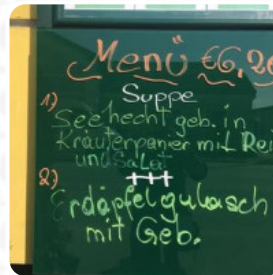 Menü €6,20
Suppe
1) Seehecht geb. in
Kräuterpanier mit Rei
und Salat
+++
2) Erdäpfelgulasch
mit Geb.